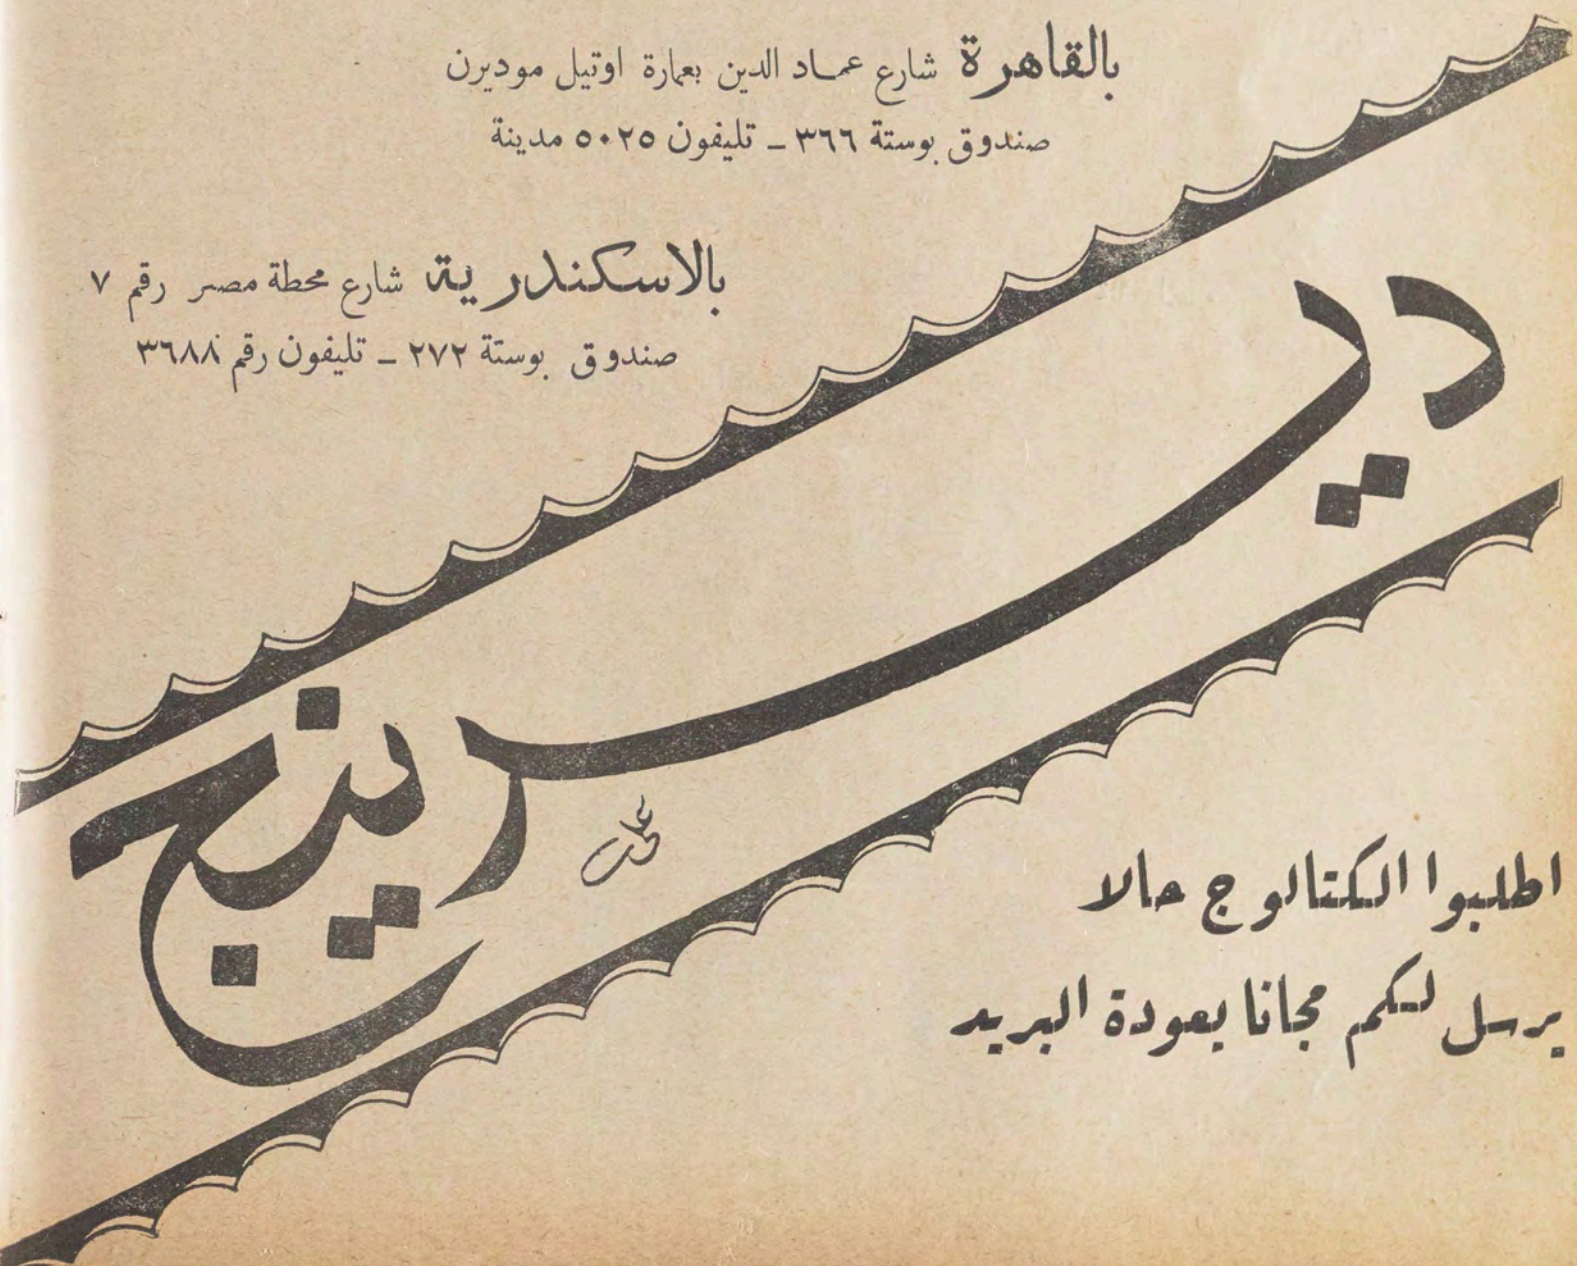 بالقاهرة شارع عماد الدين بعمارة اوتيل موديرن
صندوق بوستة ٣٦٦ – تليفون ٥٠٢٥ مدينة
بالاسكندرية شارع محطة مصر رقم ٧
صندوق بوستة ٢٧٢ – تليفون رقم ٣٦٨٨
ديسرينج
اطلبوا الكتالوج حالا
يرسل لكم مجانا بعودة البريد